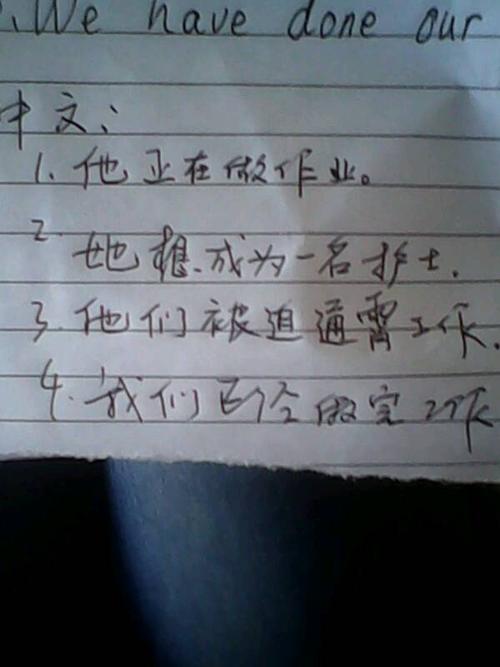 .We have done our
中文:
1. 他正在做作业。
2. 她想成为一名护士.
3. 他们被迫通霄工作.
4. 我们已经做完工作